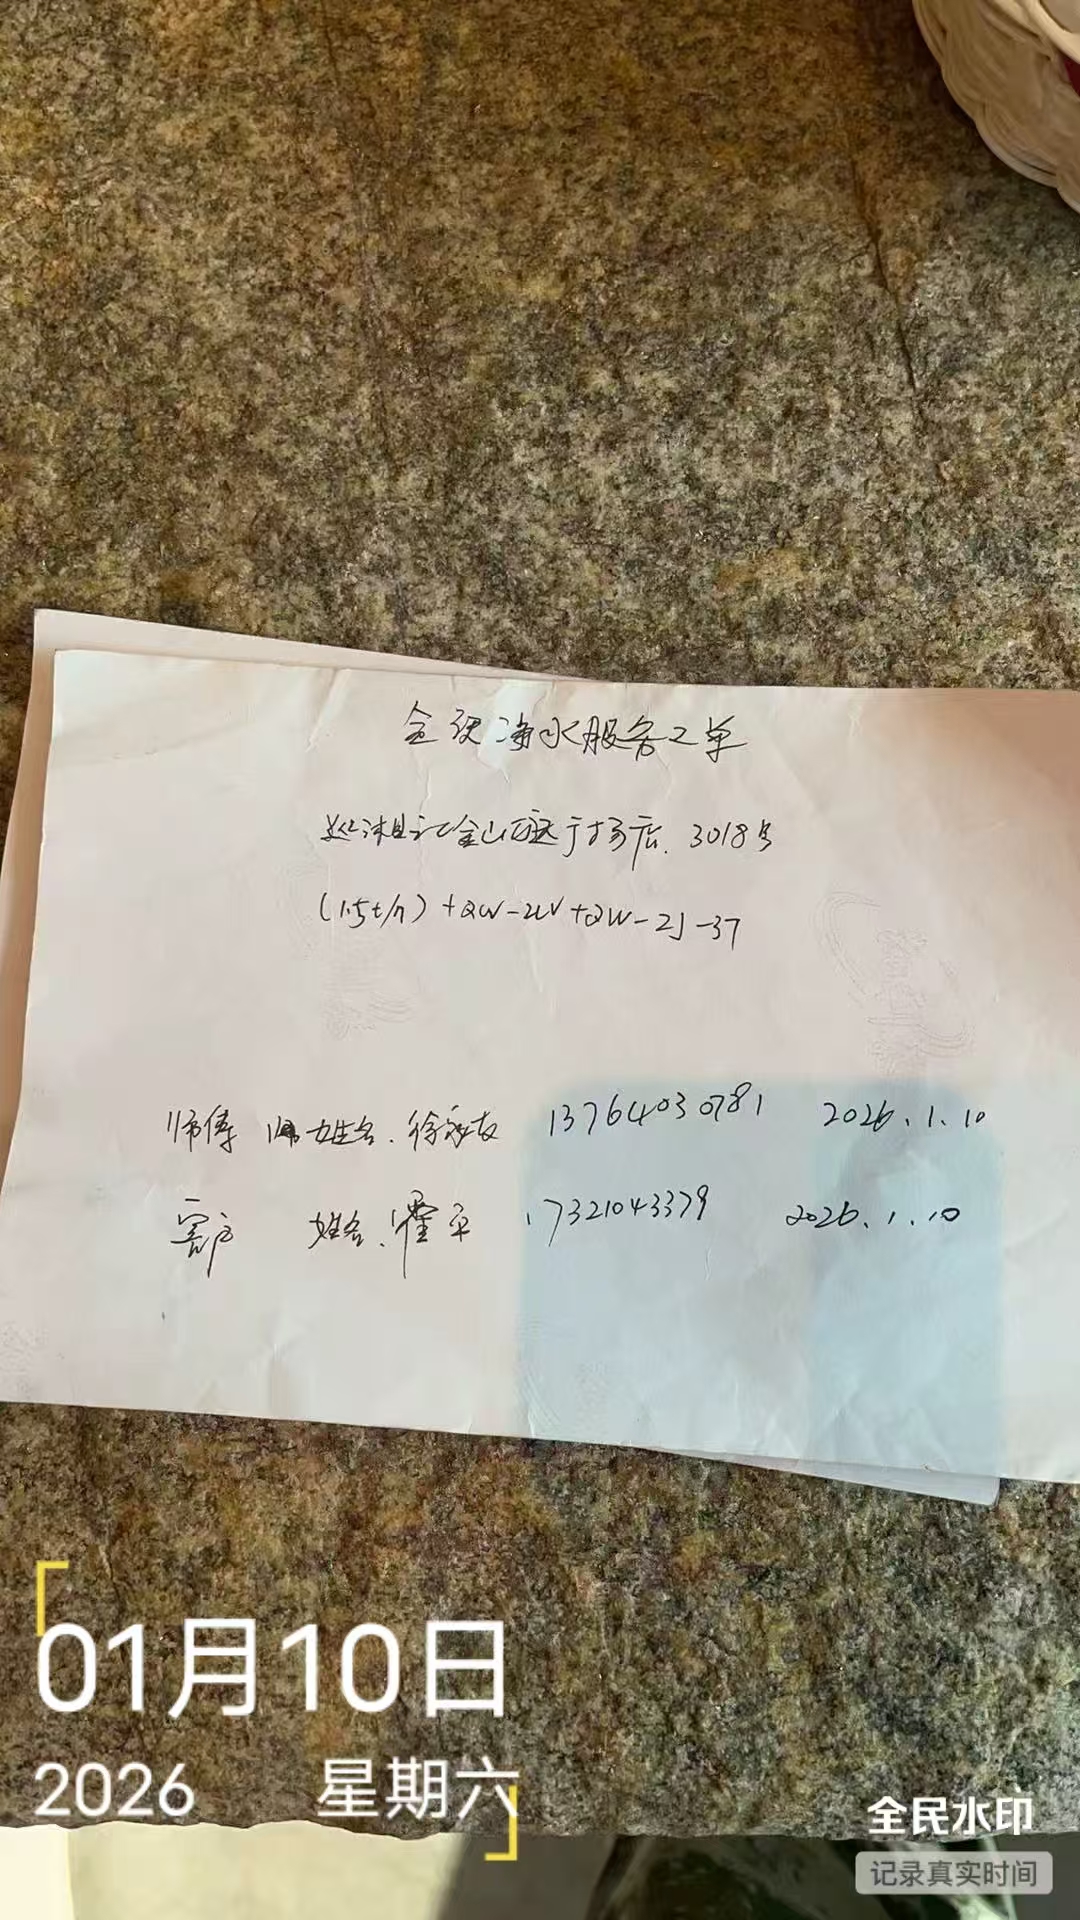 净水服务工单
金山 3018号
(1.5t/h)+QW-2UV+QW-2J-37
师傅 姓名. 徐 友 13764030781 2026.1.10
客户 姓名. 霍平 17321043379 2026.1.10
01月10日
2026 星期六
全民水印
记录真实时间